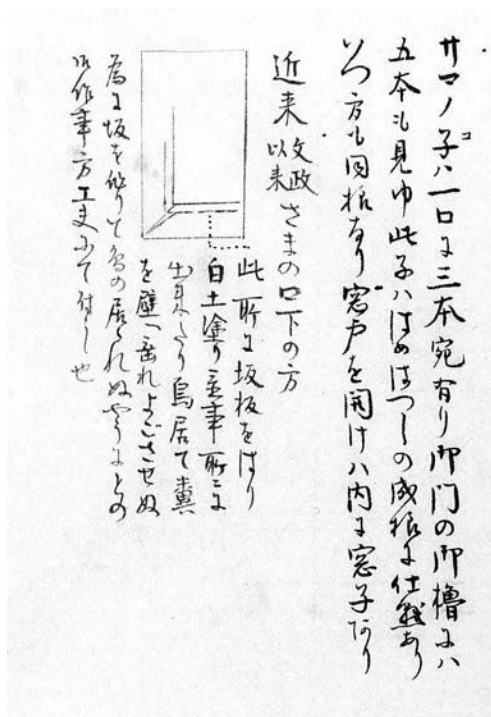 サマノ子ハ一口ニ三本宛有リ御門の御櫓ニハ
コ
五本も見ゆ此子ハはめはつしの成様ニ仕懸あり
いつ方も同様なり窓戸を開けハ内ニ窓子あり
近来文政以来さまの口下の方
此所ニ坂板をはり
白土塗り
出来たり鳥居て糞
を壁へ垂れよごさせぬ
為ニ坂を作りて鳥の居られぬやうにとの
御作事方工夫にて付し也